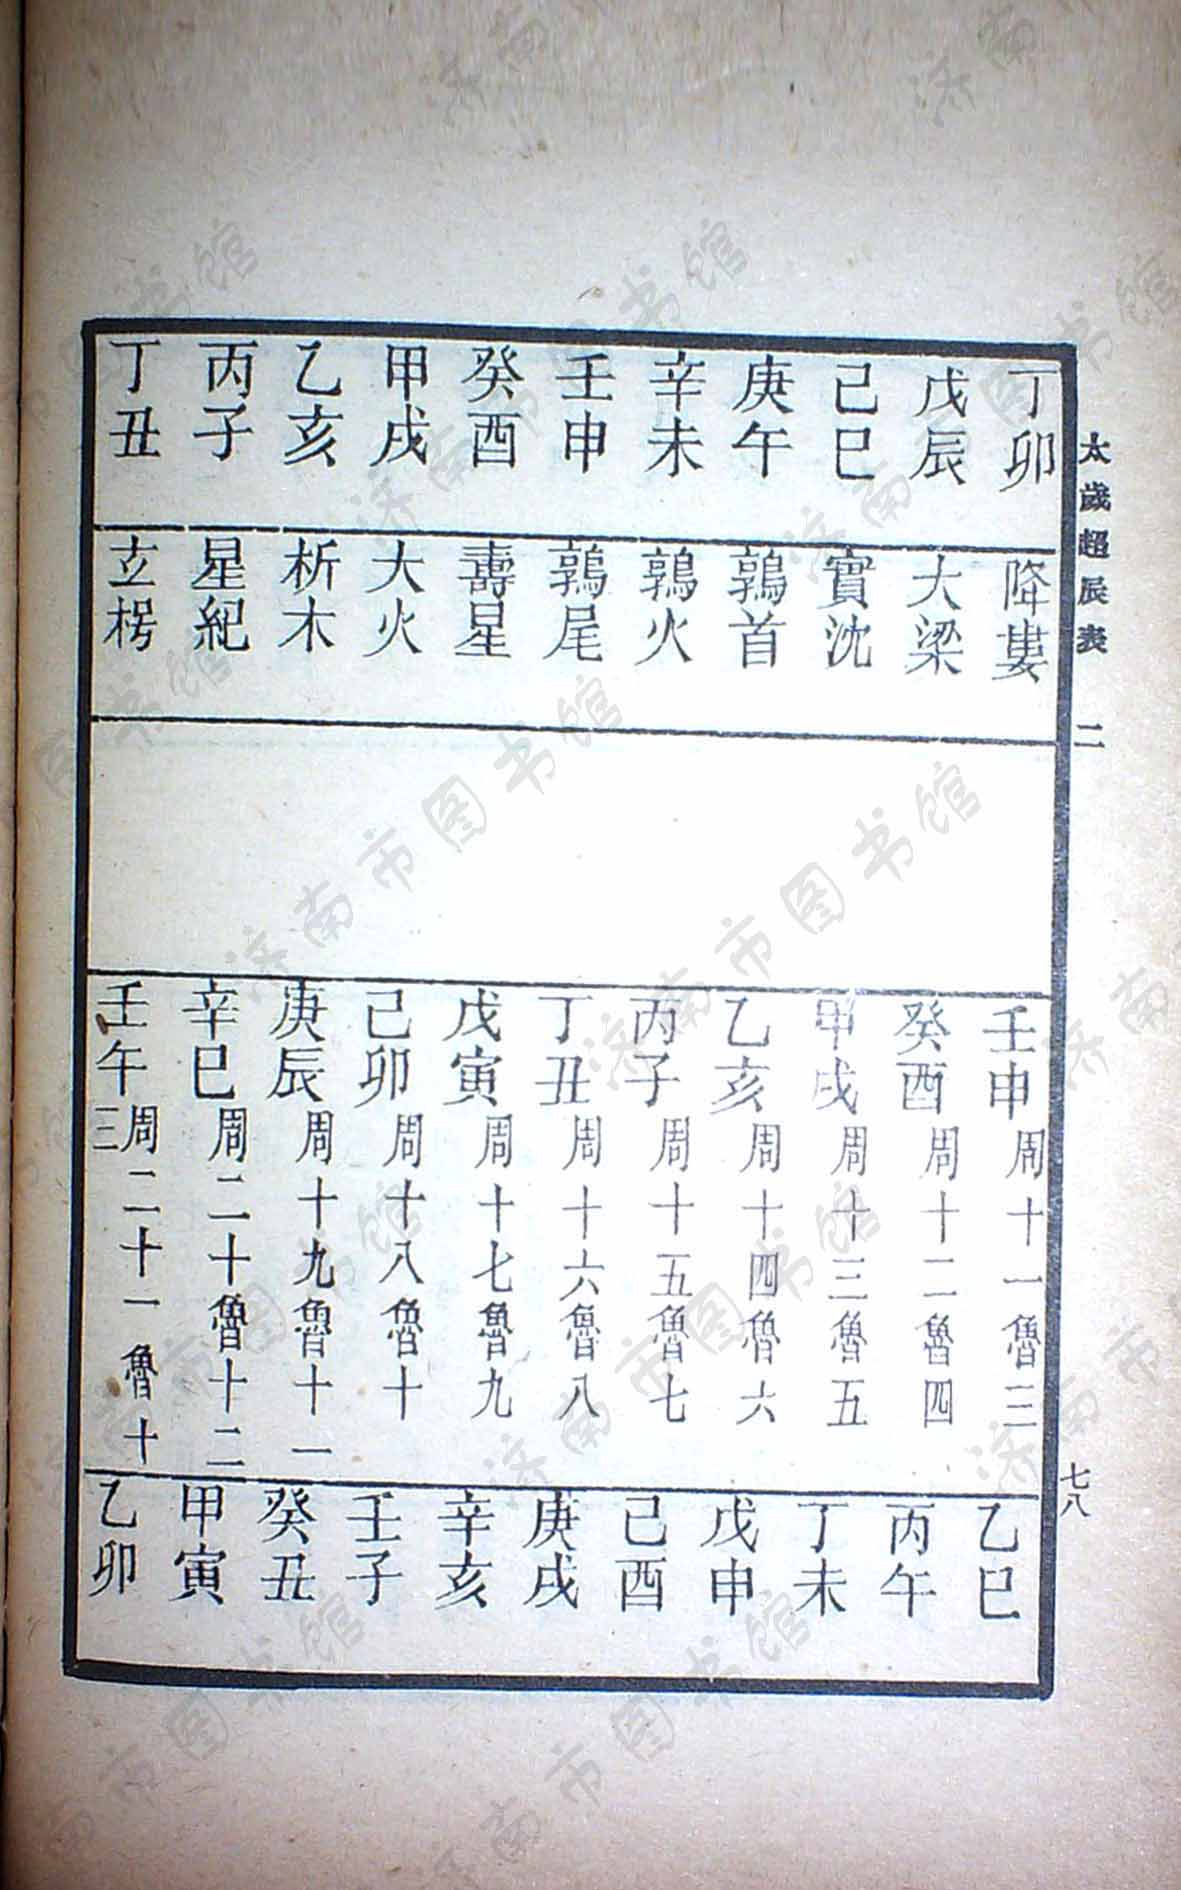 太歲超辰表 二
七八
丁卯 降婁 壬申 周十一魯三 乙巳
戊辰 大梁 癸酉 周十二魯四 丙午
己巳 實沈 甲戌 周十三魯五 丁未
庚午 鶉首 乙亥 周十四魯六 戊申
辛未 鶉火 丙子 周十五魯七 己酉
壬申 鶉尾 丁丑 周十六魯八 庚戌
癸酉 壽星 戊寅 周十七魯九 辛亥
甲戌 大火 己卯 周十八魯十 壬子
乙亥 析木 庚辰 周十九魯十一 癸丑
丙子 星紀 辛巳 周二十魯十二 甲寅
丁丑 玄枵 壬午 周二十一魯十三 乙卯
济南市图书馆